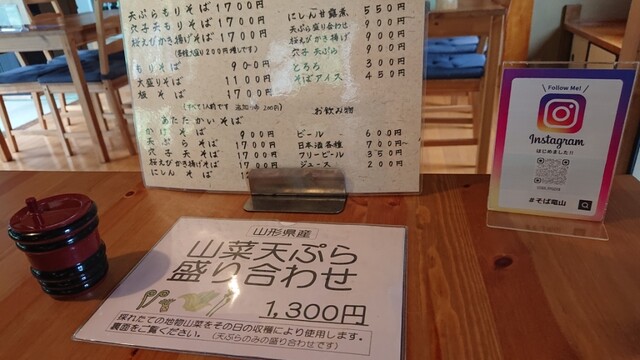 天ぷらもりそば 1700円
穴子天もりそば 1700円
桜えびかき揚げそば 1700円
もりそば 900円
大盛りそば 1100円
板そば 1700円
あたたかいそば
かけそば 900円
天ぷらそば 1700円
穴子天そば 1700円
桜えびかき揚げそば 1700円
にしんそば
にしん甘露煮 550円
天ぷら盛り合わせ 900円
桜えびかき揚げ 900円
穴子天ぷら 900円
とろろ 300円
そばアイス 450円
お飲み物
ビール 600円
日本酒各種 700円~
フリービール 350円
ジュース 200円
Follow Me!
Instagram
はじめました!!
#そば竜山
山形県産
山菜天ぷら
盛り合わせ
1,300円
採れたての地物山菜をその日の収穫により使用します。
裏面をご覧ください。(天ぷらのみの盛り合わせです)